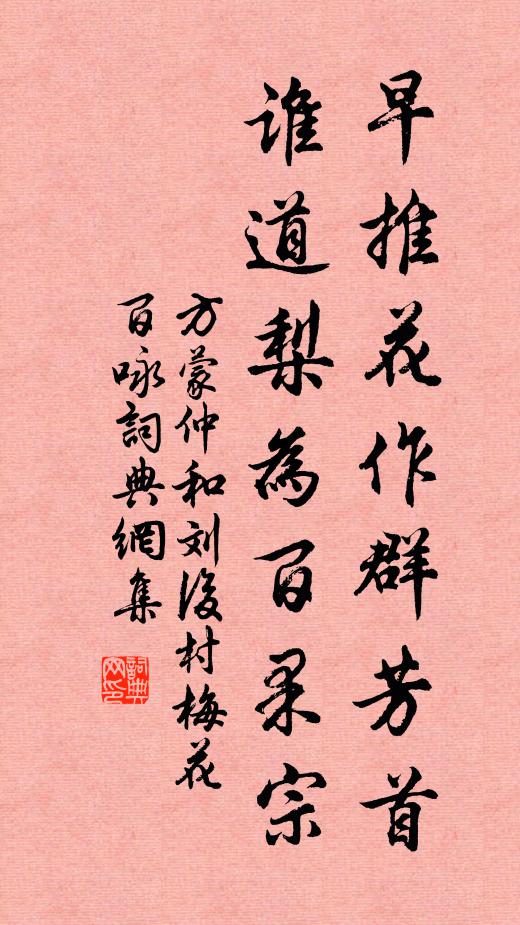 早推花作群芳首
谁道梨為百果宗
方蒙仲和刘後村梅花
百咏詞典網集
詞典网印